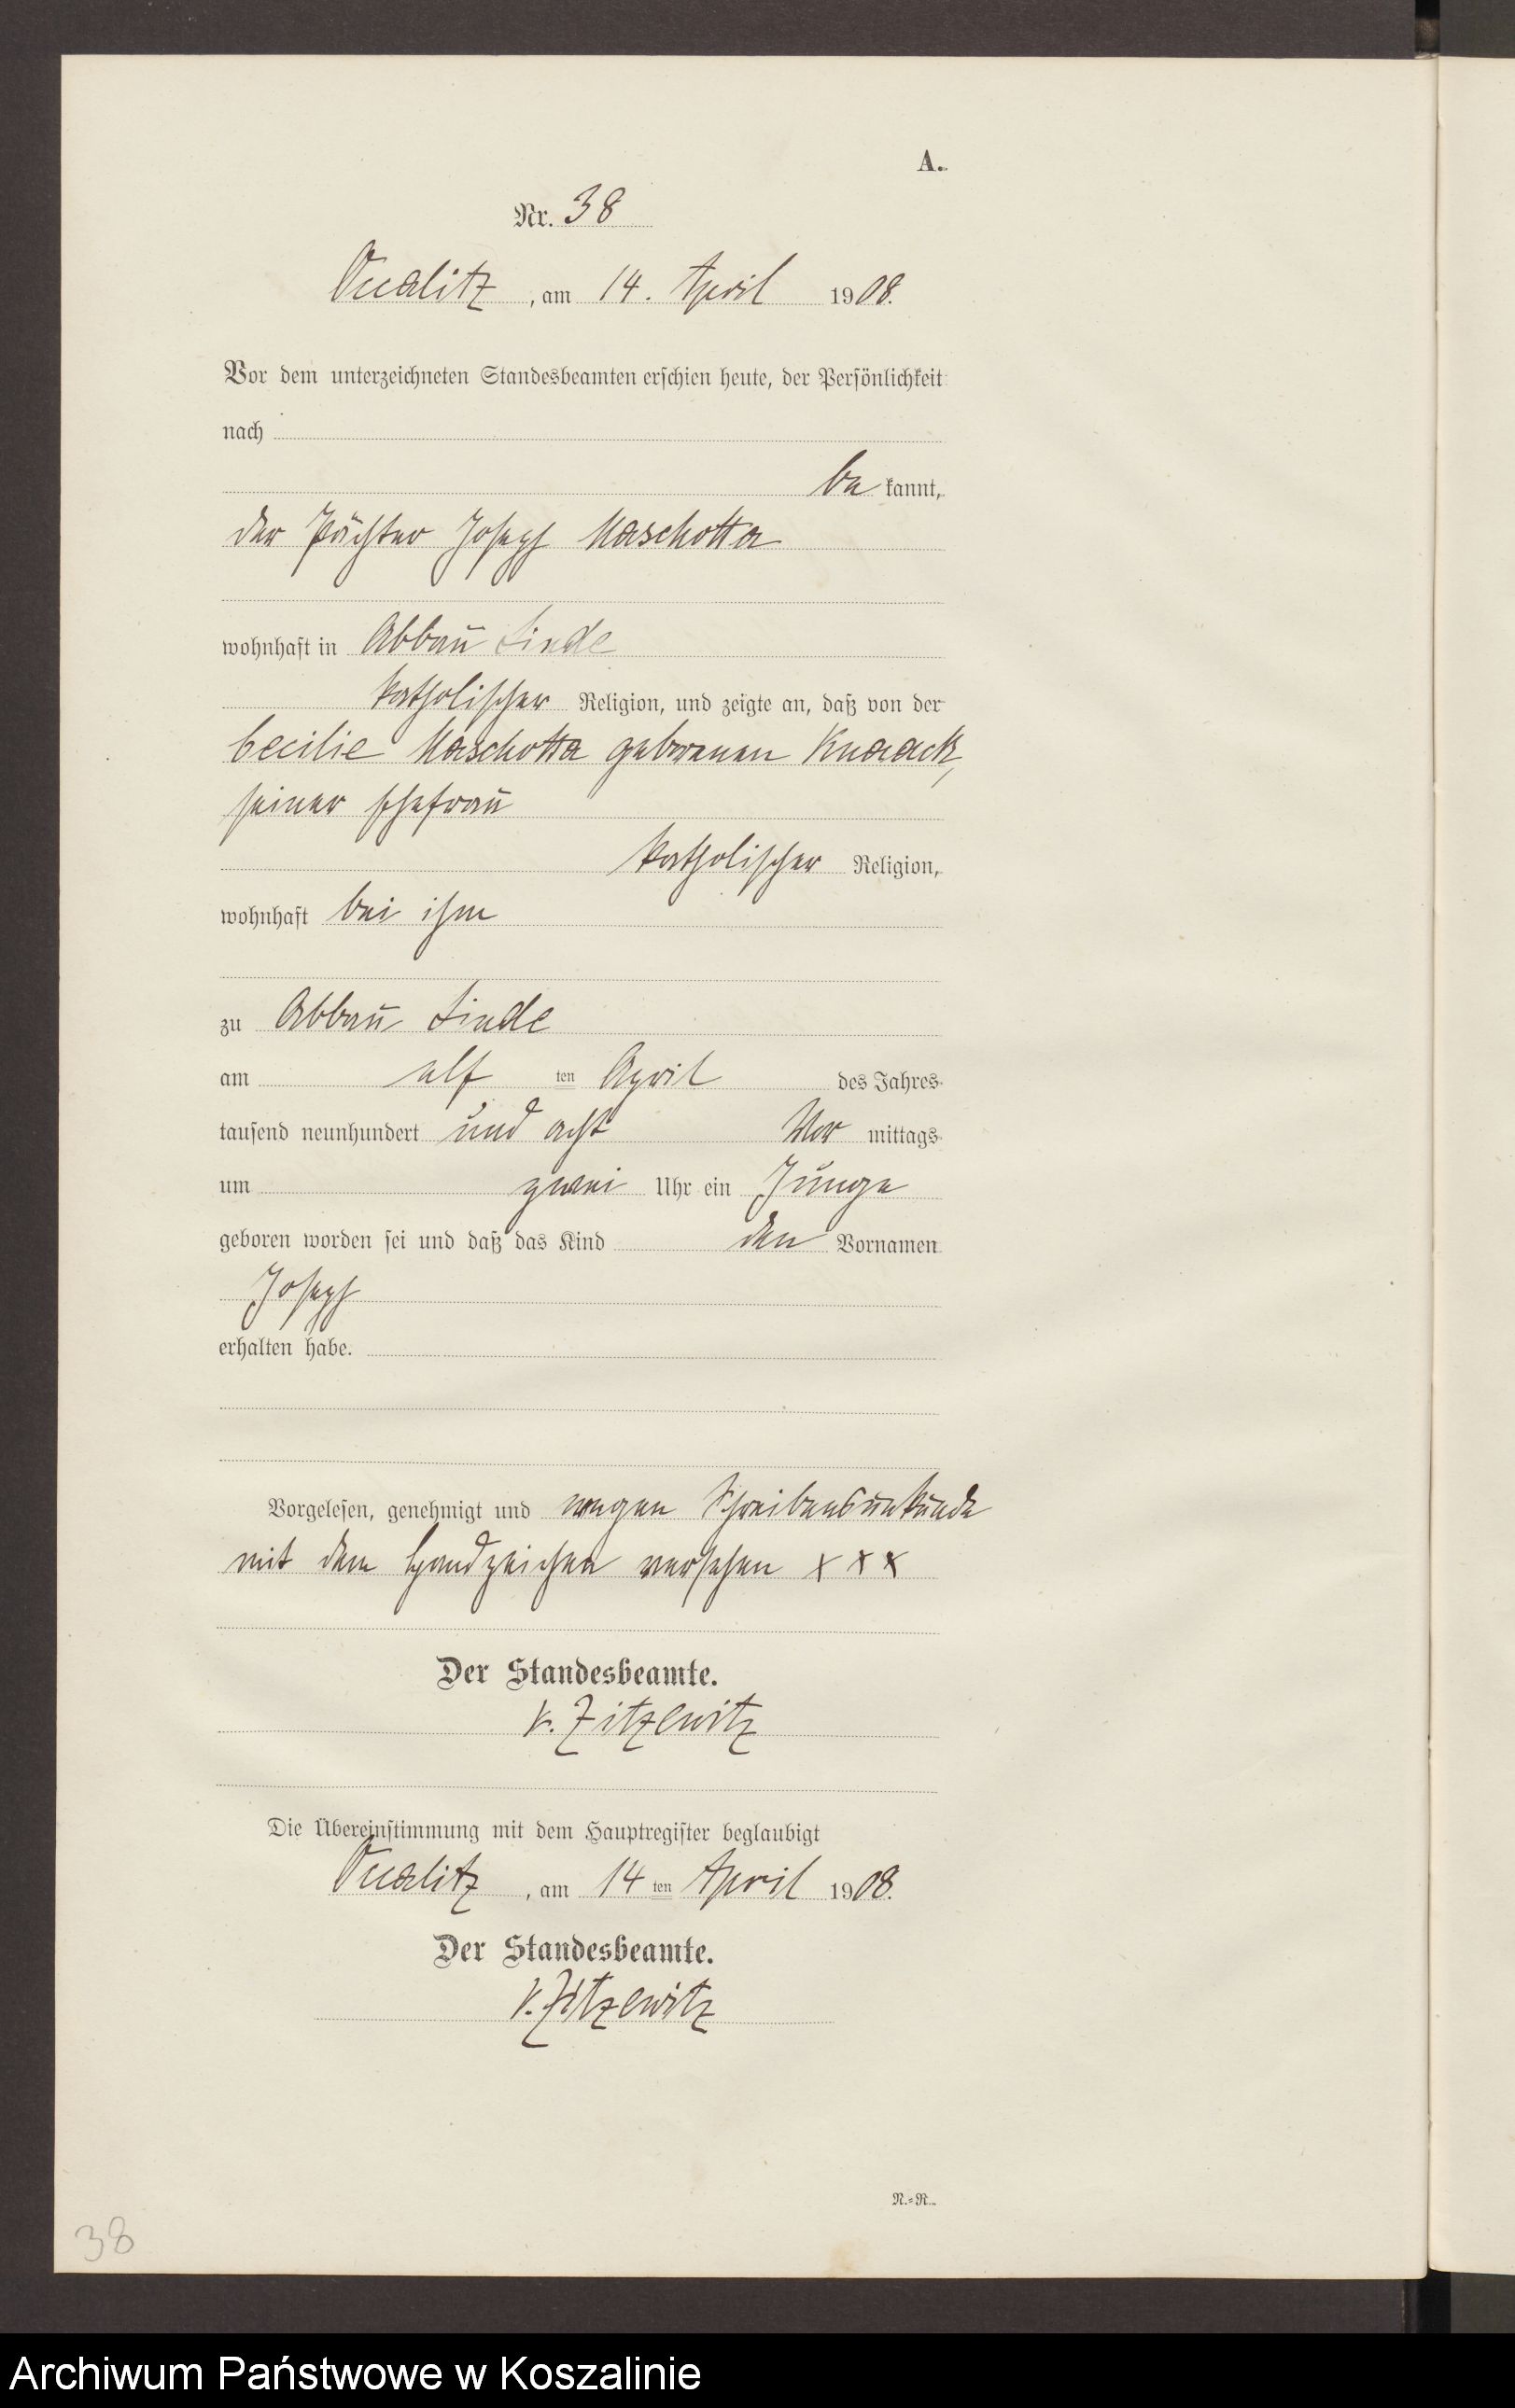 A.
Nr. 38
Vualitz, am 14. April 1908.
Vor dem unterzeichneten Standesbeamten erschien heute, der Persönlichkeit
nach
bekannt,
der Pächter Joseph Maschotta
wohnhaft in Abbau Linde
katholischer Religion, und zeigte an, daß von der
Cecilie Maschotta geborenen Knaack,
seiner Ehefrau
katholischer Religion,
wohnhaft bei ihm
zu Abbau Linde
am elf ten April des Jahres
tausend neunhundert und acht Vor mittags
um zwei Uhr ein Junge
geboren worden sei und daß das Kind den Vornamen
Joseph
erhalten habe.
Vorgelesen, genehmigt und wegen Schreibensunkunde
mit dem Handzeichen versehen x x x
Der Standesbeamte.
v. Zitzewitz
Die Übereinstimmung mit dem Hauptregister beglaubigt
Vualitz, am 14 ten April 1908.
Der Standesbeamte.
v. Zitzewitz
N.=R.
38
Archiwum Państwowe w Koszalinie